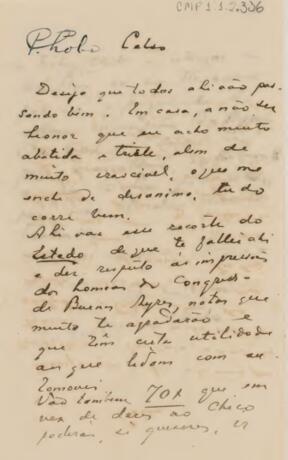 CMP 1.1.2.306
Celso
Desejo que todos ahi vão pas-
sando bem. Em casa, a não ser
que eu acho muito
abatida e triste, alem de
muito irascivel, o que me
enche de desanimo, tudo
corre bem.
Ahi vae esse recorte do
de que te fallei ahi
e diz respeito ás impressões
dos homens do Congresso
de Buenos Ayres, notas que
muito te agradarão e
que têm certa utilidade
aos que lidam com
Vão tambem 70$ que em
vez de dares ao Chico
poderás, si quizeres, ir